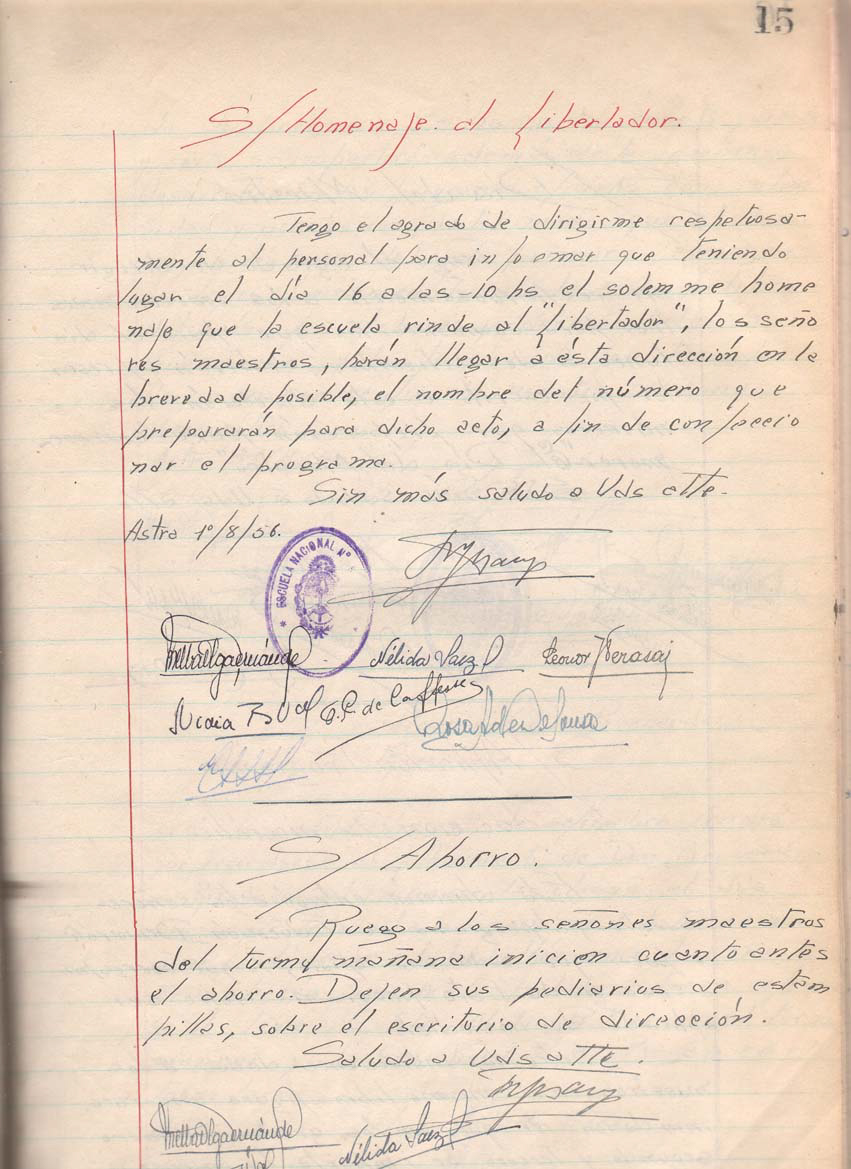 15
S/ Homenaje al Libertador.
Tengo el agrado de dirigirme respetuosa-
mente al personal para informar que teniendo
lugar el día 16 a las -10 hs el solemme home
naje que la escuela rinde al "Libertador", los seño
res maestros, harán llegar a ésta dirección en la
brevedad posible, el nombre del número que
prepararán para dicho acto, a fin de confeccio
nar el programa.
Sin más saludo a Uds atte.
Astra 1º/8/56.
ESCUELA NACIONAL Nº
Nélida Saez
S/ Ahorro.
Ruego a los señores maestros
del turno mañana inicien cuanto antes
el ahorro. Dejen sus pediarios de estam
pillas, sobre el escritorio de dirección.
Saludo a Uds atte.
Nélida Saez